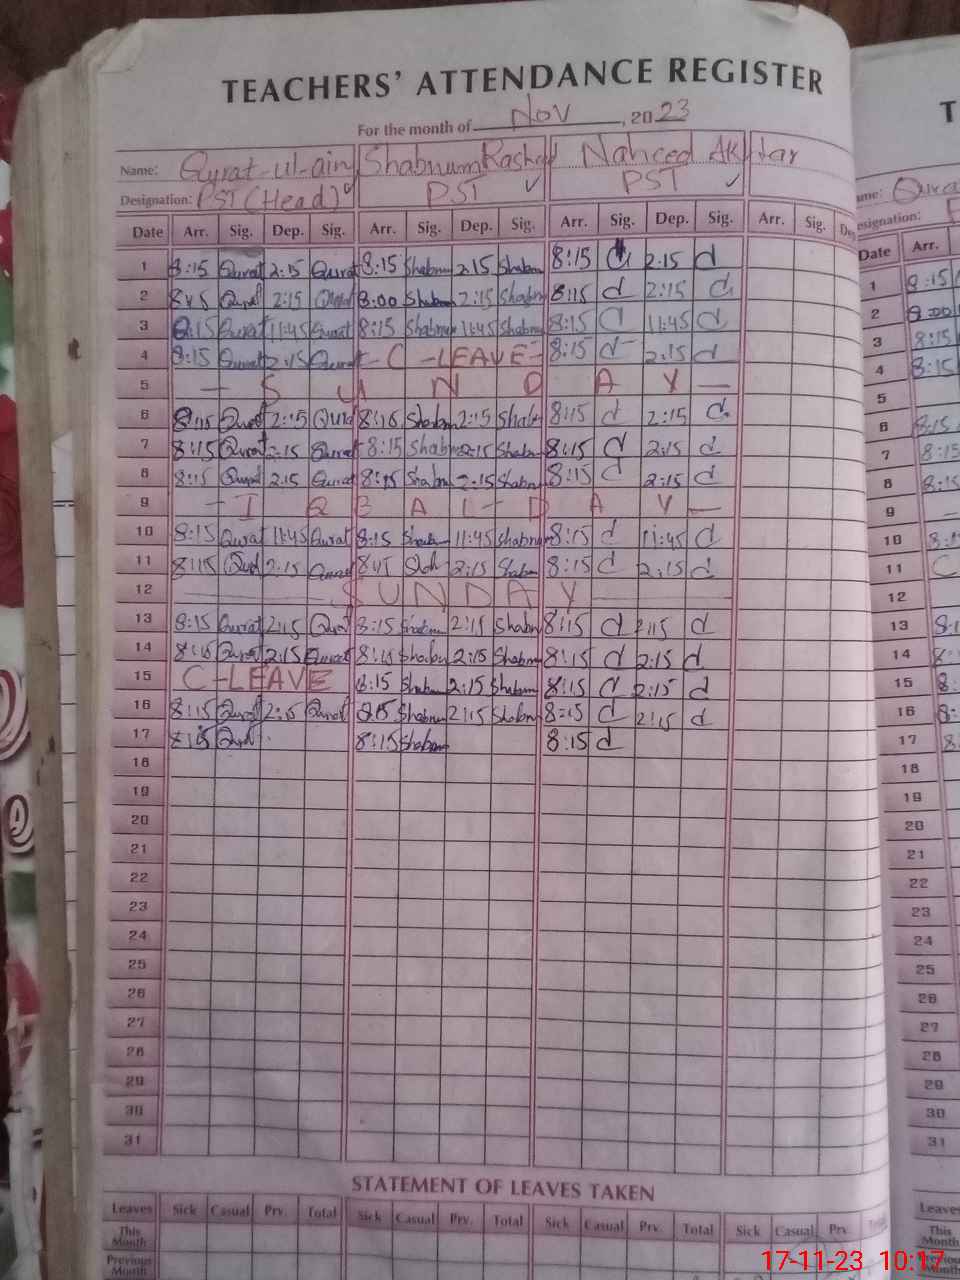 TEACHERS' ATTENDANCE REGISTER
For the month of Nov, 2023
Name: Qurat-ul-ain Shabnum Rashid Naheed Akhtar
Designation: PST (Head) ✓ PST ✓ PST ✓
Date Arr. Sig. Dep. Sig. Arr. Sig. Dep. Sig. Arr. Sig. Dep. Sig. Arr. Sig.
1 8:15 Qurat 2:15 Qurat 8:15 Shabnum 2:15 Shabnum 8:15 d 2:15 d
2 8:15 Qurat 2:15 Qurat 8:00 Shabnum 2:15 Shabnum 8:15 d 2:15 d
3 8:15 Qurat 11:45 Qurat 8:15 Shabnum 11:45 Shabnum 8:15 d 11:45 d
4 8:15 Qurat 2:15 Qurat - C-LEAVE- 8:15 d 2:15 d
5 — S U N D A Y —
6 8:15 Qurat 2:15 Qurat 8:15 Shabnum 2:15 Shabnum 8:15 d 2:15 d
7 8:15 Qurat 2:15 Qurat 8:15 Shabnum 2:15 Shabnum 8:15 d 2:15 d
8 8:15 Qurat 2:15 Qurat 8:15 Shabnum 2:15 Shabnum 8:15 d 2:15 d
9 — I Q B A L - D A Y —
10 8:15 Qurat 11:45 Qurat 8:15 Shabnum 11:45 Shabnum 8:15 d 11:45 d
11 8:15 2:15 2:15 Shabnum 8:15 d 2:15 d
12 — SUNDAY —
13 8:15 Qurat 2:15 Qurat 8:15 Shabnum 2:15 Shabnum 8:15 d 2:15 d
14 8:15 Qurat 2:15 Qurat 8:15 Shabnum 2:15 Shabnum 8:15 d 2:15 d
15 C-LEAVE 8:15 Shabnum 2:15 Shabnum 8:15 d 2:15 d
16 8:15 Qurat 2:15 Qurat 8:15 Shabnum 2:15 Shabnum 8:15 d 2:15 d
17 8:15 Qurat 8:15 Shabnum 8:15 d
18
19
20
21
22
23
24
25
26
27
28
29
30
31
STATEMENT OF LEAVES TAKEN
Leaves Sick Casual Prv. Total Sick Casual Prv. Total Sick Casual Prv. Total Sick Casual Prv. Total
This Month
Previous Month
17-11-23 10:17